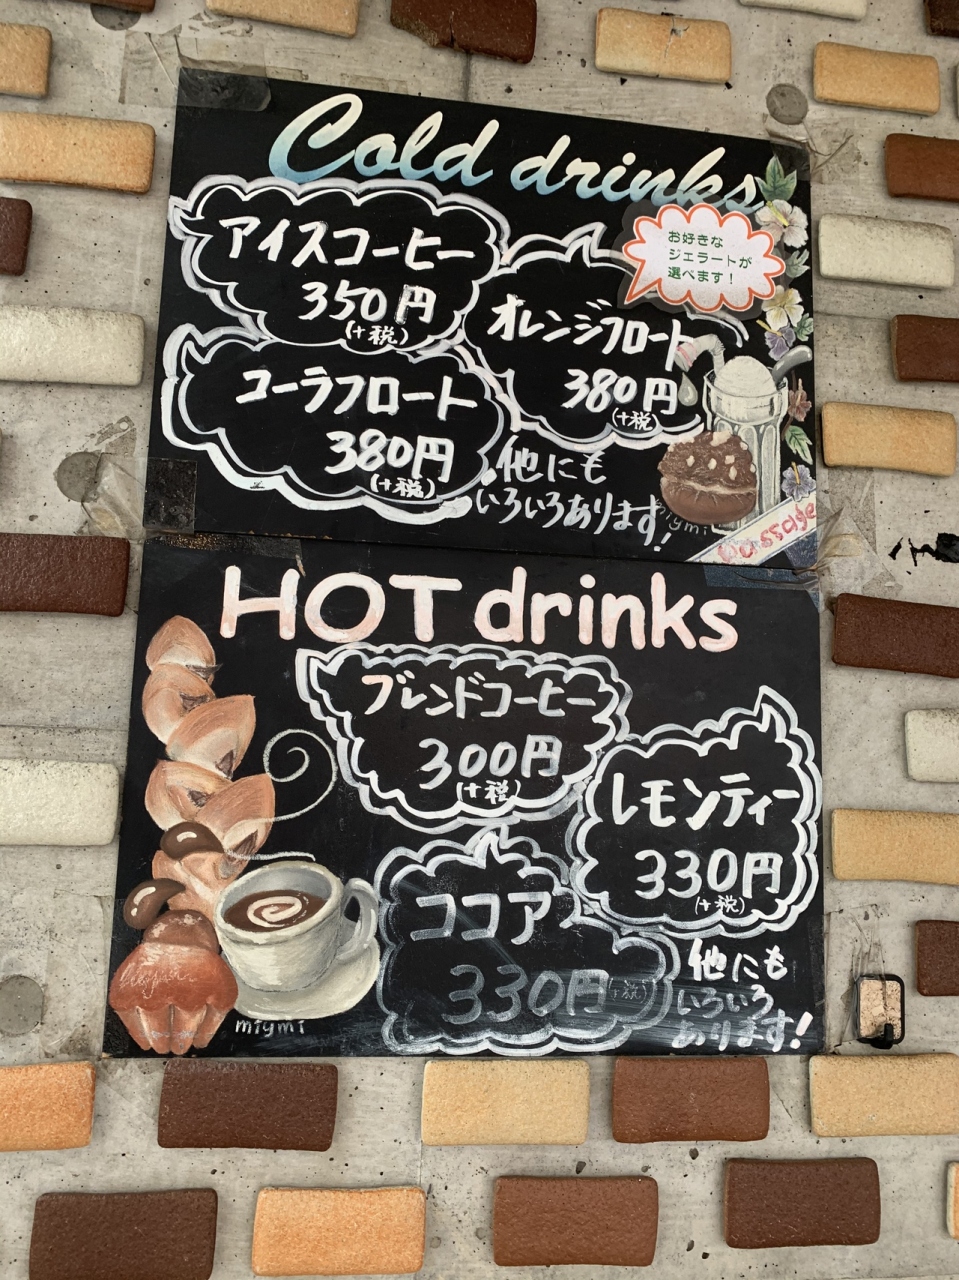 Cold drinks
お好きな
ジェラートが
選べます！
アイスコーヒー
350円
(+税)
オレンジフロート
380円
(+税)
コーラフロート
380円
(+税)
他にも
いろいろあります!
miymi
HOT drinks
ブレンドコーヒー
300円
(+税)
レモンティー
330円
(+税)
ココア
330円(+税)
他にも
いろいろ
あります!
miymi